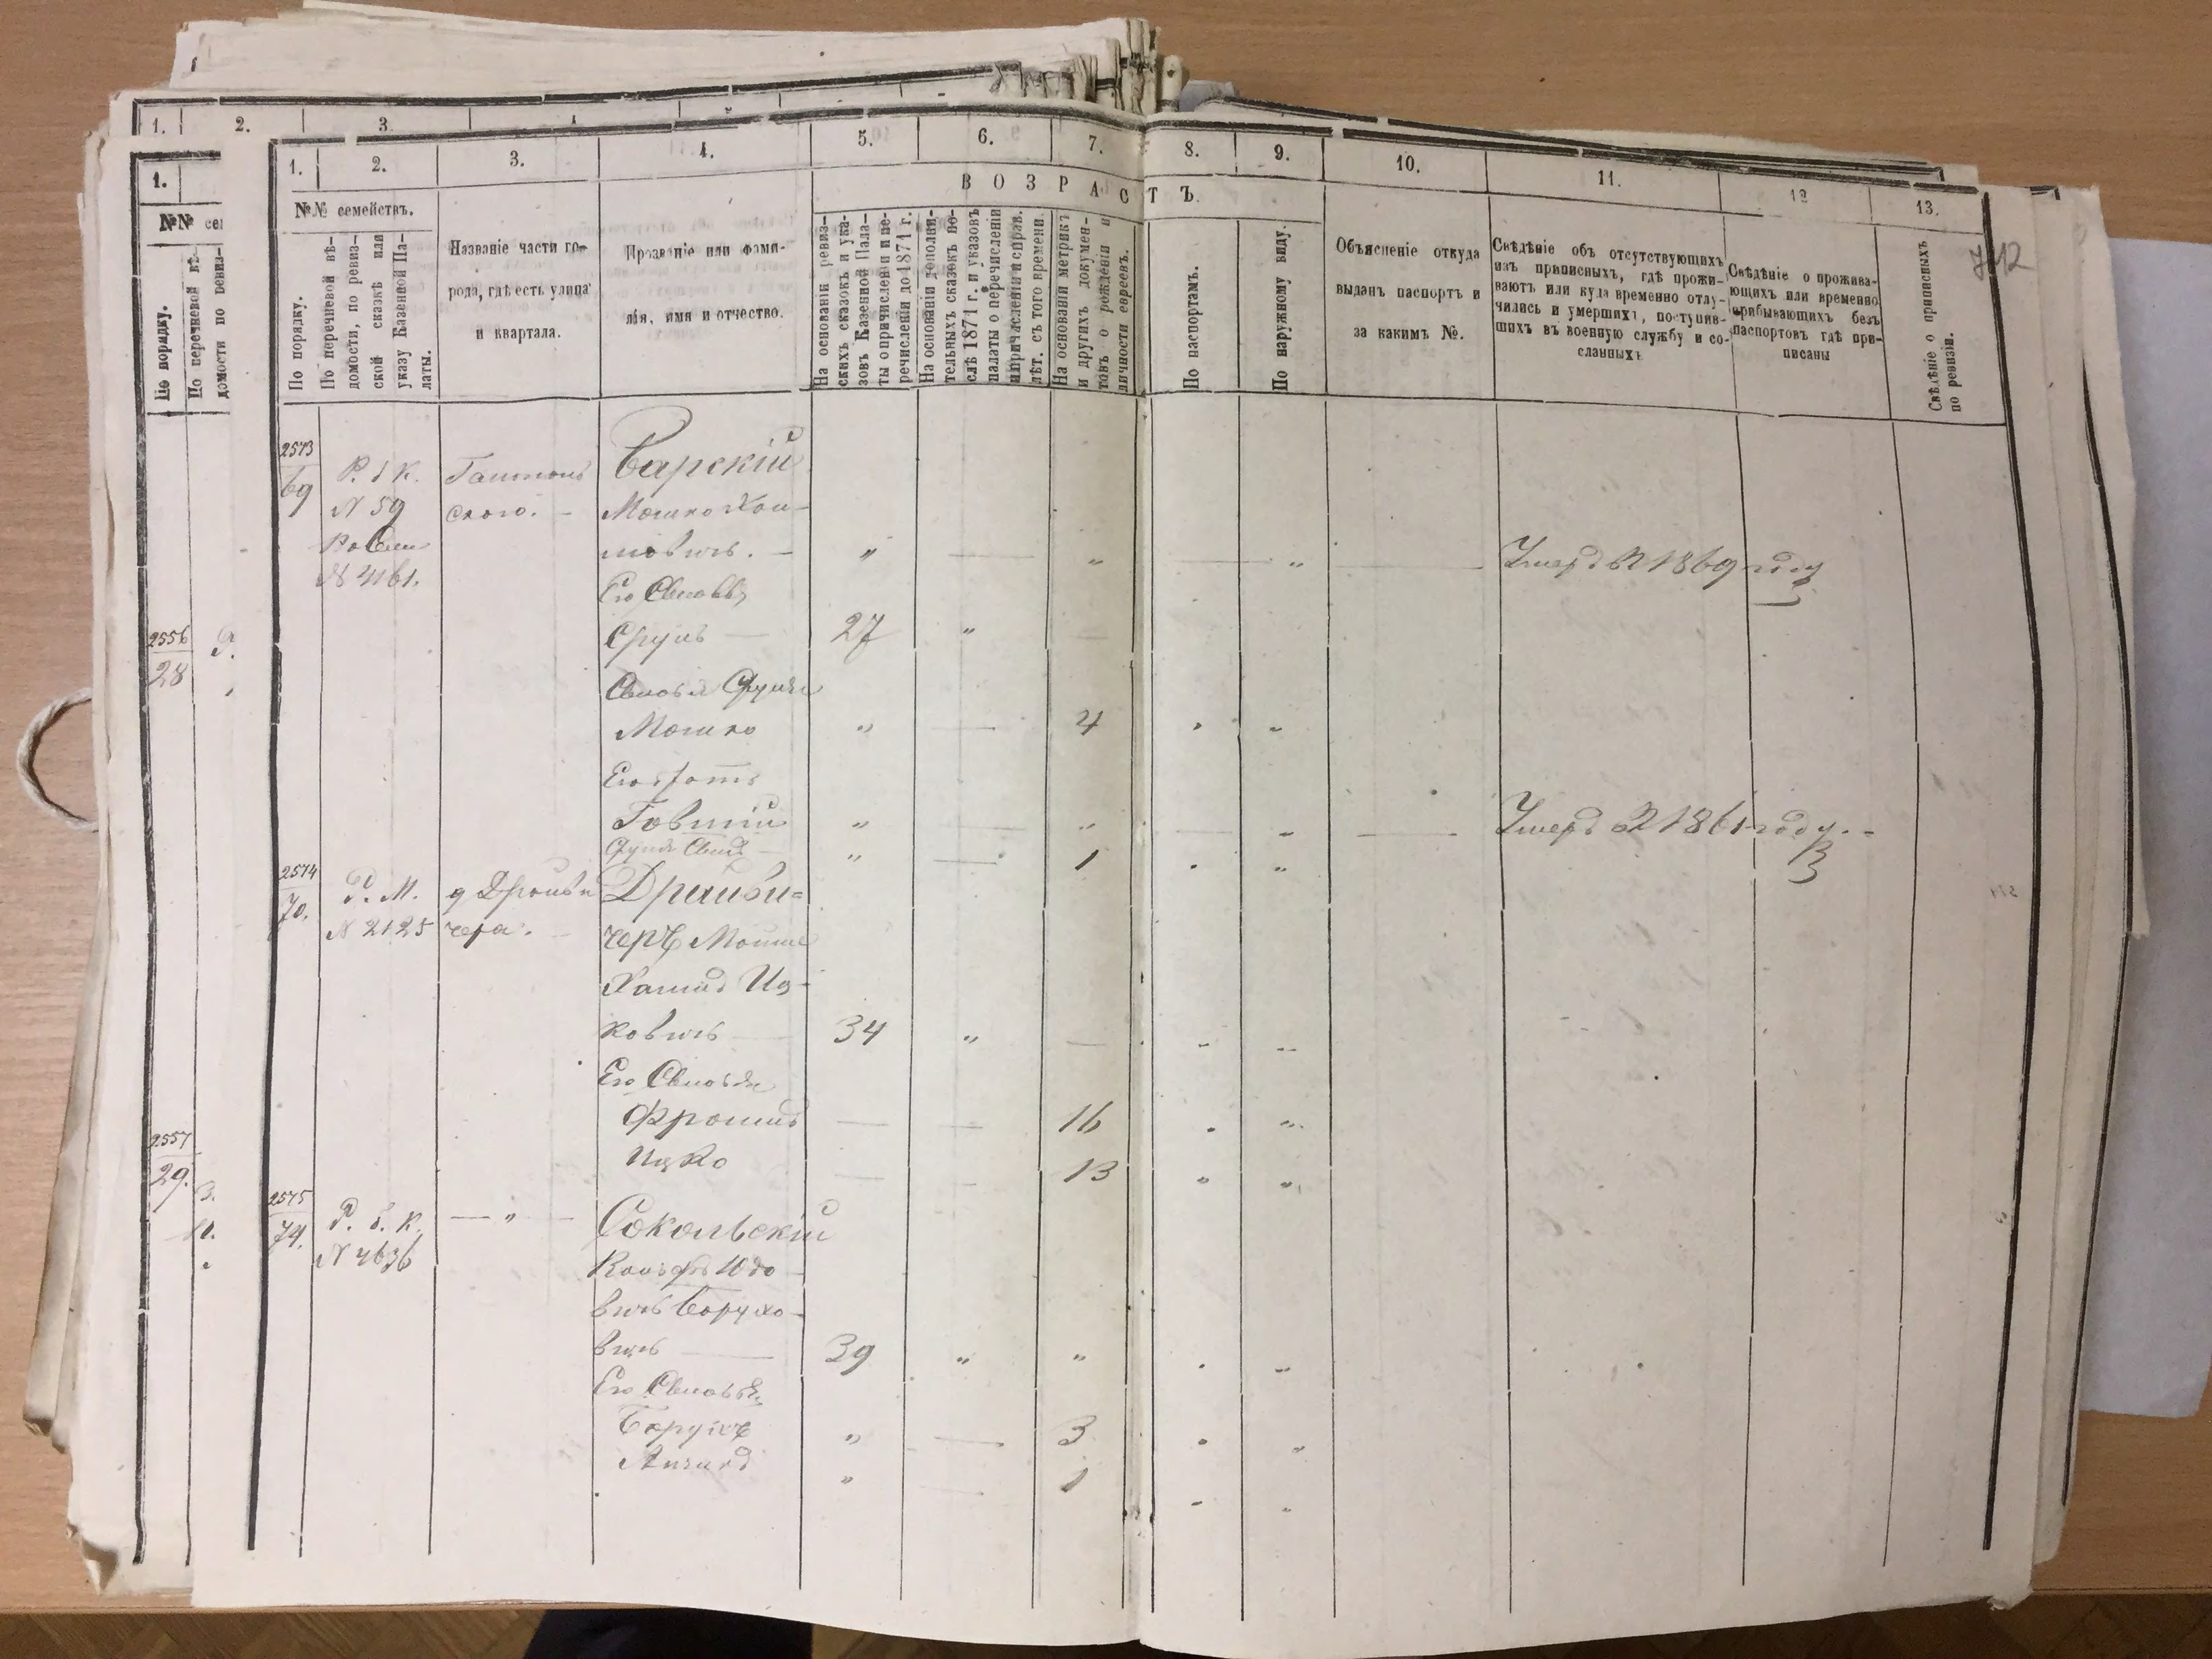 1. 2. 3.
1.
№№ сем
По порядку.
По перечневой вѣ-
домости по ревиз-
2556
28
2557
29.
1. 2. 3. 4. 5. 6. 7. 8. 9. 10. 11. 12 13.
712
№№ семействъ.
ВОЗРАСТЪ.
По порядку.
По перечневой вѣ-
домости, по ревиз-
ской сказкѣ или
указу Казенной Па-
латы.
Названіе части го-
рода, гдѣ есть улица
и квартала.
Прозваніе или фами-
лія, имя и отчество.
На основаніи ревиз-
скихъ сказокъ и ука-
зовъ Казенной Пала-
ты о причисленіи и пе-
речисленіи до 1871 г.
На основаніи дополни-
тельныхъ сказокъ по-
слѣ 1871 г. и указовъ
палаты о перечисленіи
и причисленіи и справ.
лѣт. съ того времени.
На основаніи метрикъ
и другихъ докумен-
товъ о рожденіи и
личности евреевъ.
По паспортамъ.
По наружному виду.
Объясненіе откуда
выданъ паспортъ и
за какимъ №.
Свѣдѣніе объ отсутствующихъ
изъ приписныхъ, гдѣ прожи-
ваютъ или куда временно отлу-
чились и умершихъ, поступив-
шихъ въ военную службу и со-
сланныхъ
Свѣдѣніе о прожива-
ющихъ или временно
прибывающихъ безъ
паспортовъ гдѣ при-
писаны
Свѣдѣніе о приписныхъ
по ревизіи.
2573 Барскій
69 Р. б к.
N 59 ского. - Мошко Хаи-
мовичъ. - " — " — " — Умеръ въ 1869 году
N 4161.
Его Сыновья
Сруль — 27 "
Сыновья Сруля
Мошко " — 4 " "
Его братъ
Говшій " — " — " — Умеръ въ 1861 году. -
Сруля Сынъ " — 1 " "
2574 Р. М. Драйби=
70. N 2125 чера. - черъ Мошко
Хаимъ Иц-
ковичъ — 34 " — " "
Его Сыновья
Фроимъ — — 16 " "
Ицко — — 13 " "
2575 Р. б. к. — " — Сокольскій
74. N 4636
Юдо-
вичъ Борухо-
вичъ — 39 " " " "
Его Сыновья
Борухъ " — 3 " "
" — 1 " "